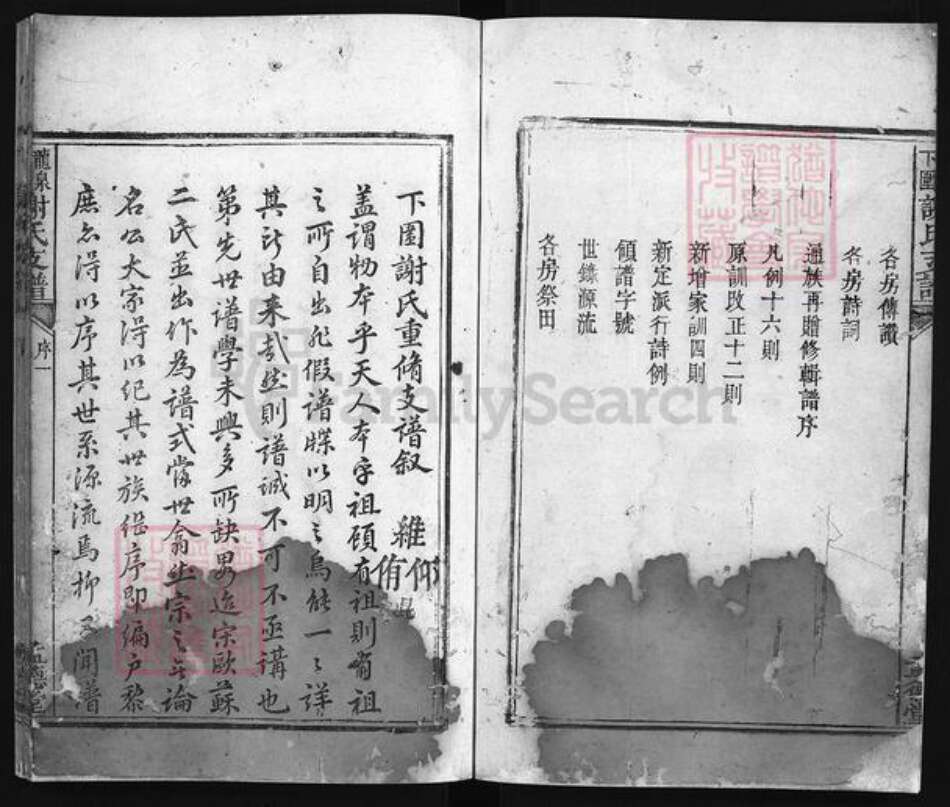 各房傳讚
各房詩詞
通族再贈修輯譜序
凡例十六則
原訓改正十二則
新增家訓四則
新定派行詩例
領譜字號
世錄源流
各房祭田
下圍謝氏重脩支譜叙
蓋謂物本乎天人本乎祖顧有祖則有祖
之所自出非假譜牒以明之烏能一之詳
其所由来哉然則譜誠不可不亟講也
第先世譜學未興多所缺畧迨宋歐蘇
二氏並出作為譜式當世翕然宗之無論
名公大家得以纪其世族継序即編户黎
庶亦得以序其世系源流焉抑又聞譜
謝氏支譜
序一
FamilySearch